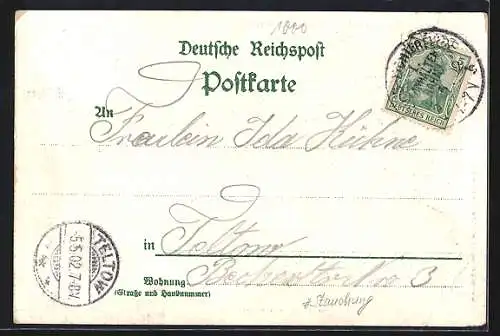 1000
Deutsche Reichspost
Postkarte
An
Fräulein Ida Kühne
DEUTSCHES REICH
in Teltow
Wohnung
(Straße und Hausnummer)
No 3
TELTOW
5.5.02.7-8V.